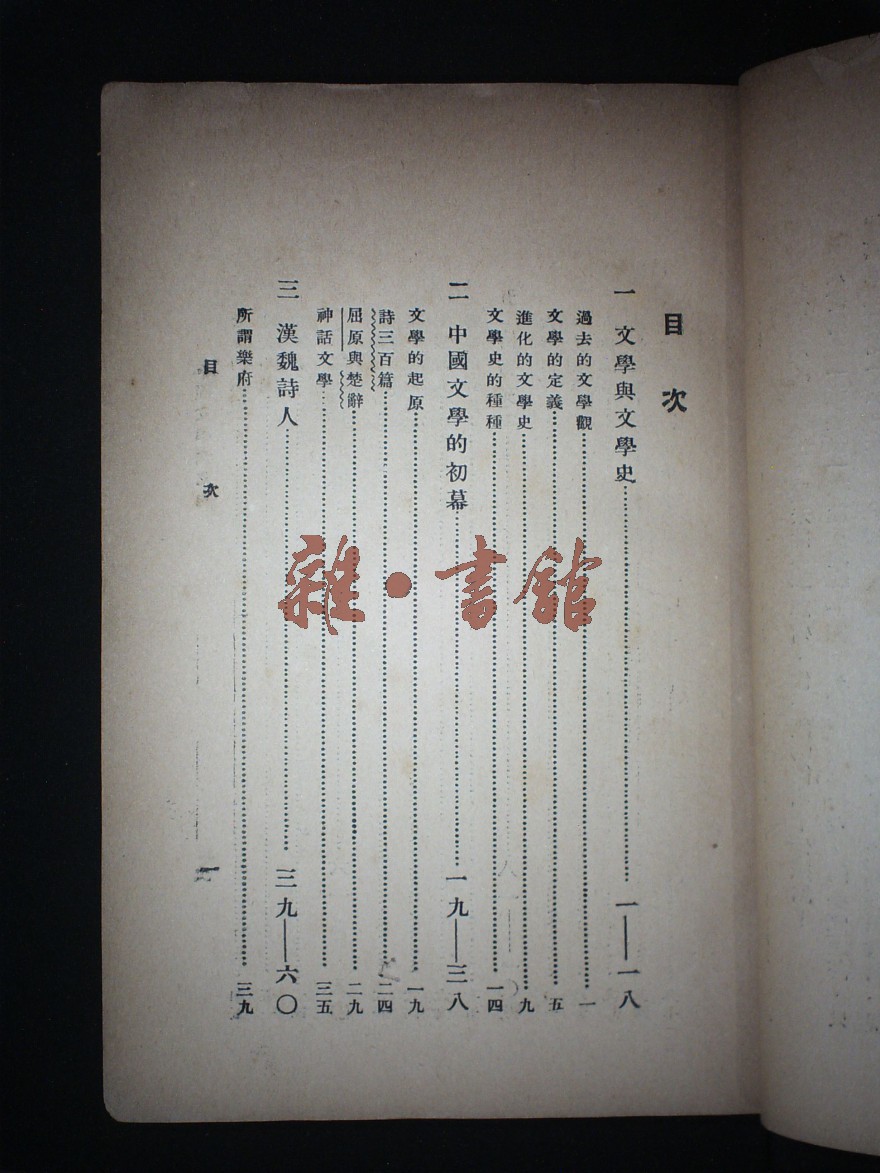 目次
一 文學與文學史……一——一八
過去的文學觀……一
文學的定義……五
進化的文學史……九
文學史的種種……一四
二 中國文學的初幕……一九——三八
文學的起原……一九
詩三百篇……二四
屈原與楚辭……二九
神話文學……三五
三 漢魏詩人……三九——六〇
所謂樂府……三九
目次
一
雜·書館